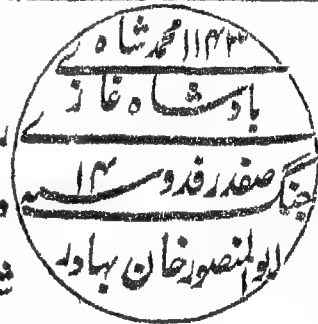 ۱۱۴۳ محمد شاه
بادشاه غازے
جنگ صفدر فدوے ۱۴
ابوالمنصور خان بہادر